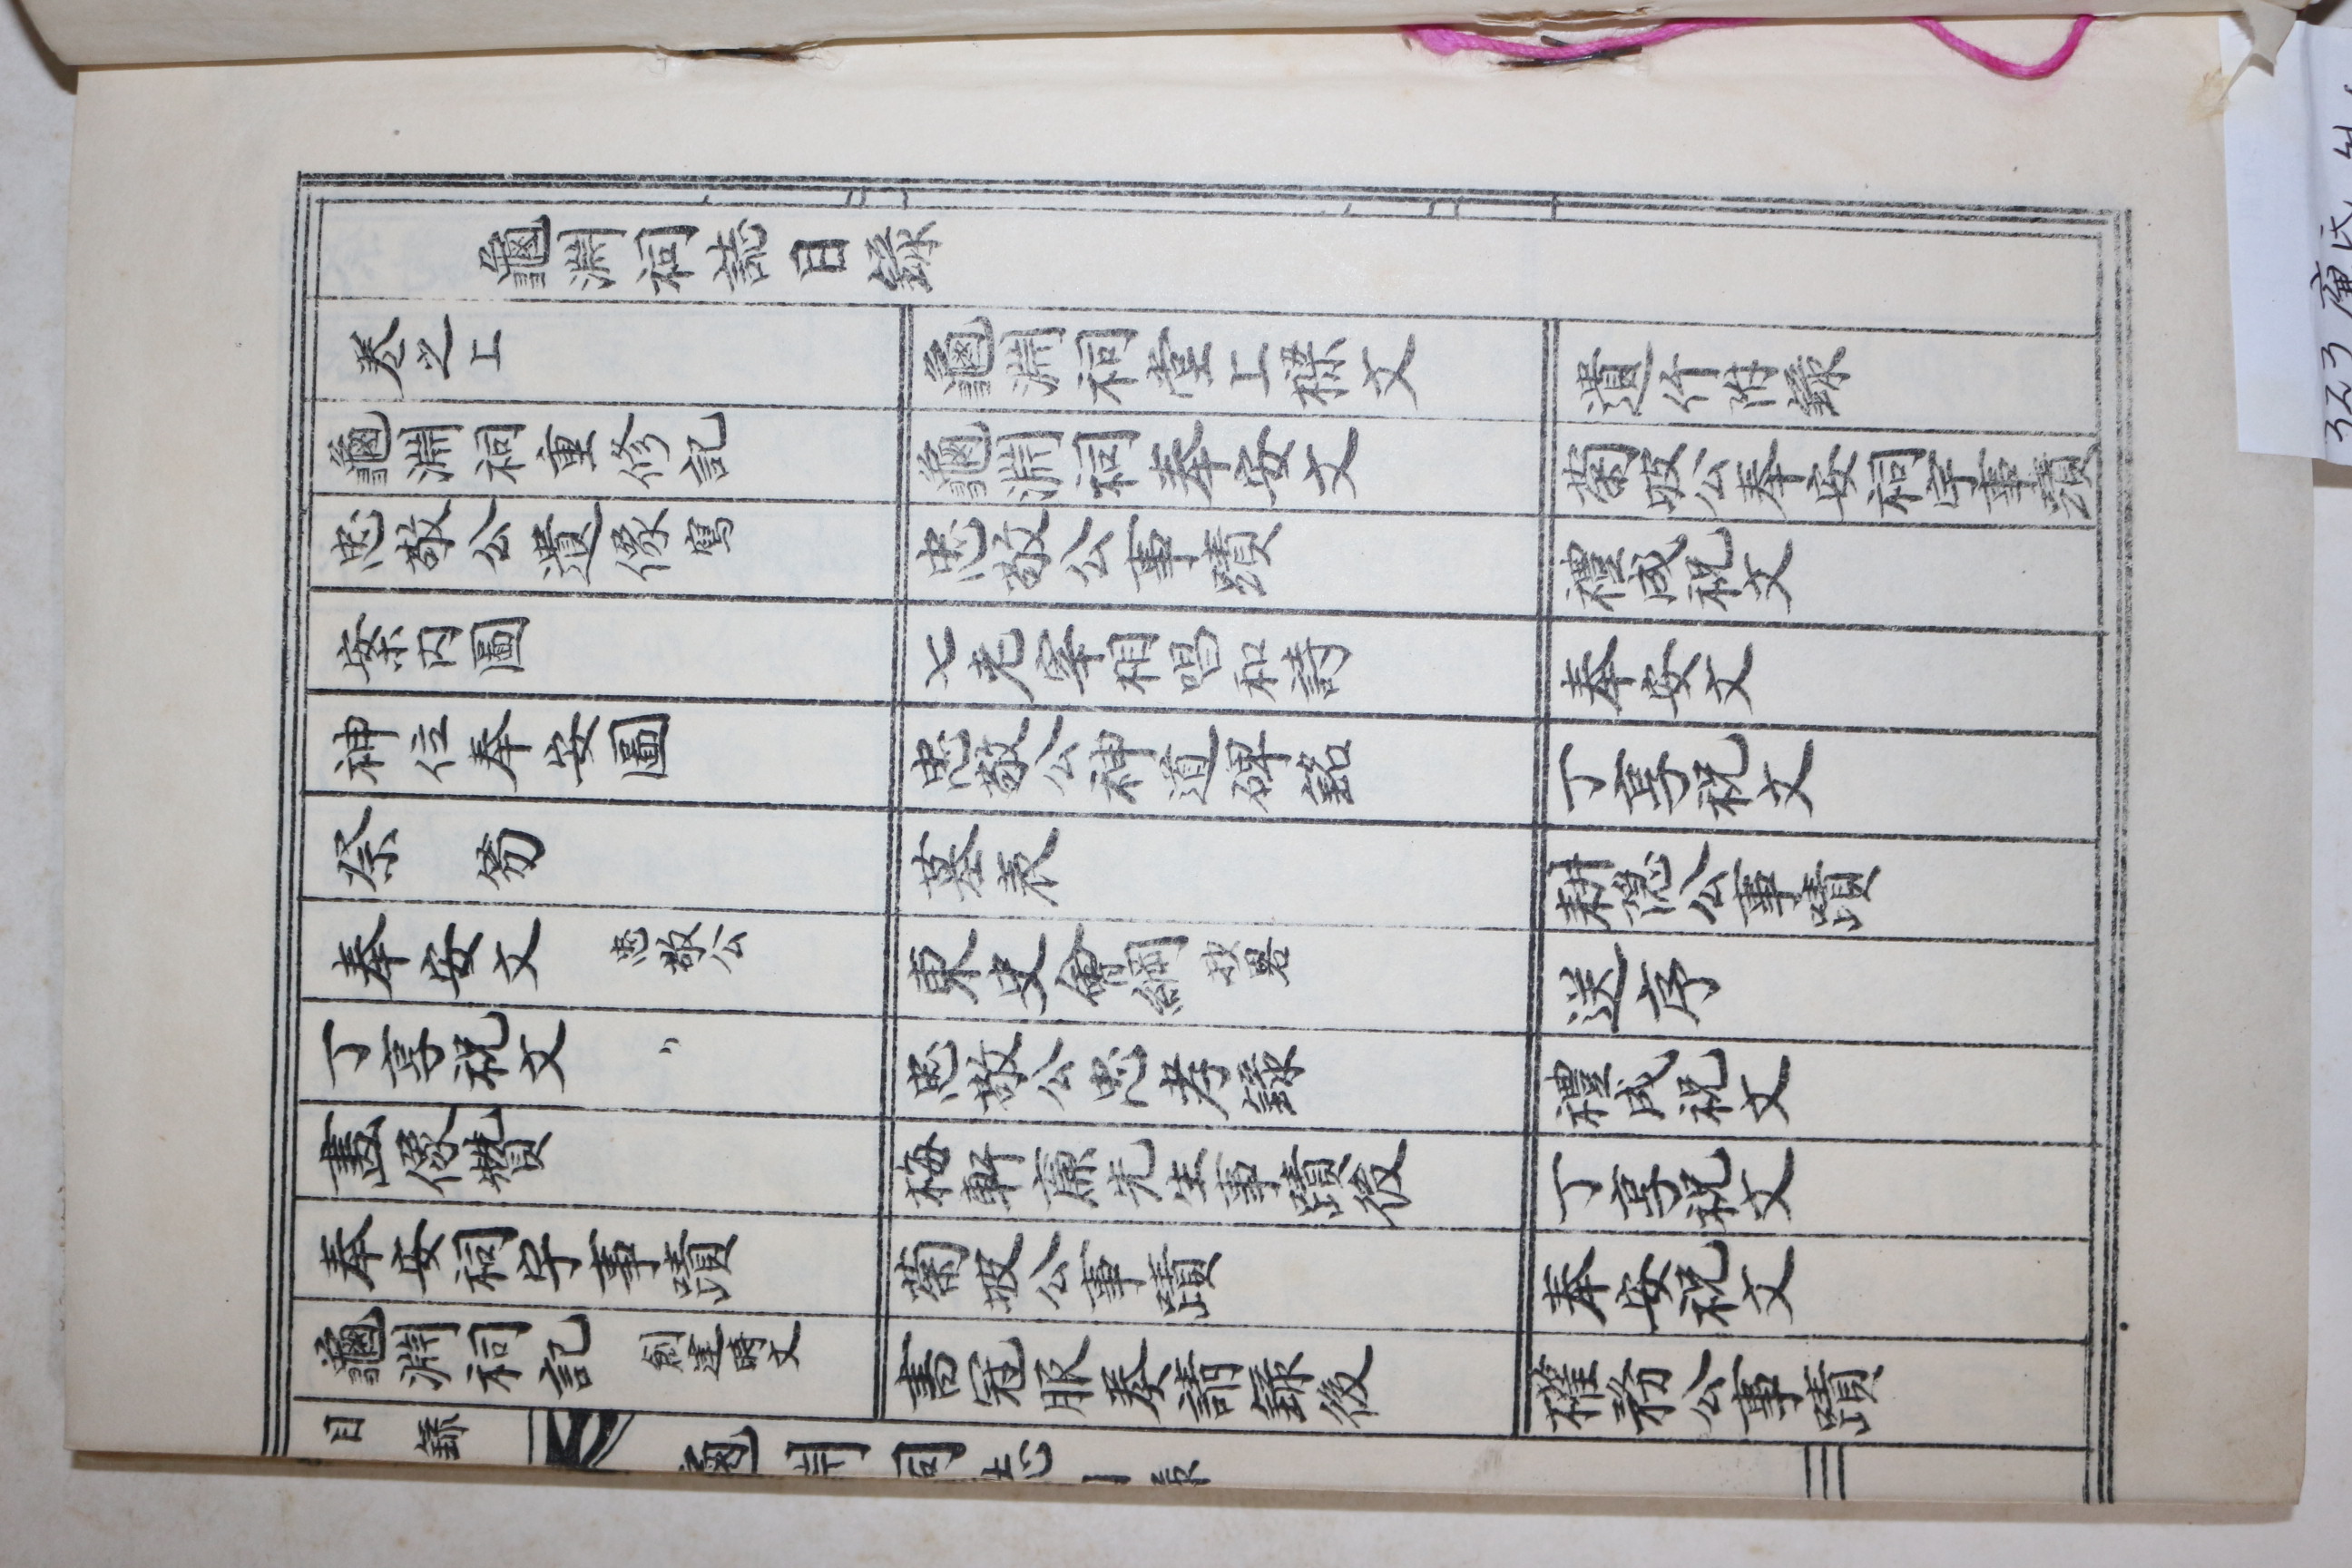 龜淵祠誌目錄
卷之上
龜淵祠重修記
忠敬公遺像寫
案內圖
神位奉安圖
祭笏
奉安文 忠敬公
丁享祝文 〃
畵像贊
奉安祠宇事蹟
龜淵祠記 創建時文
龜淵祠堂上樑文
龜淵祠奉安文
忠敬公事蹟
七老宰相唱和詩
忠敬公神道碑銘
墓表
東史會綱 拔畧
忠敬公忠孝錄
梅軒齋先生事蹟後
菊坡公事蹟
書冠服奏請錄後
遺什附錄
菊坡公奉安祠宇事蹟
禮成祝文
奉安文
丁享祝文
耕隱公事蹟
送序
禮成祝文
丁享祝文
奉安祝文
權務公事蹟
目錄
323 廉氏